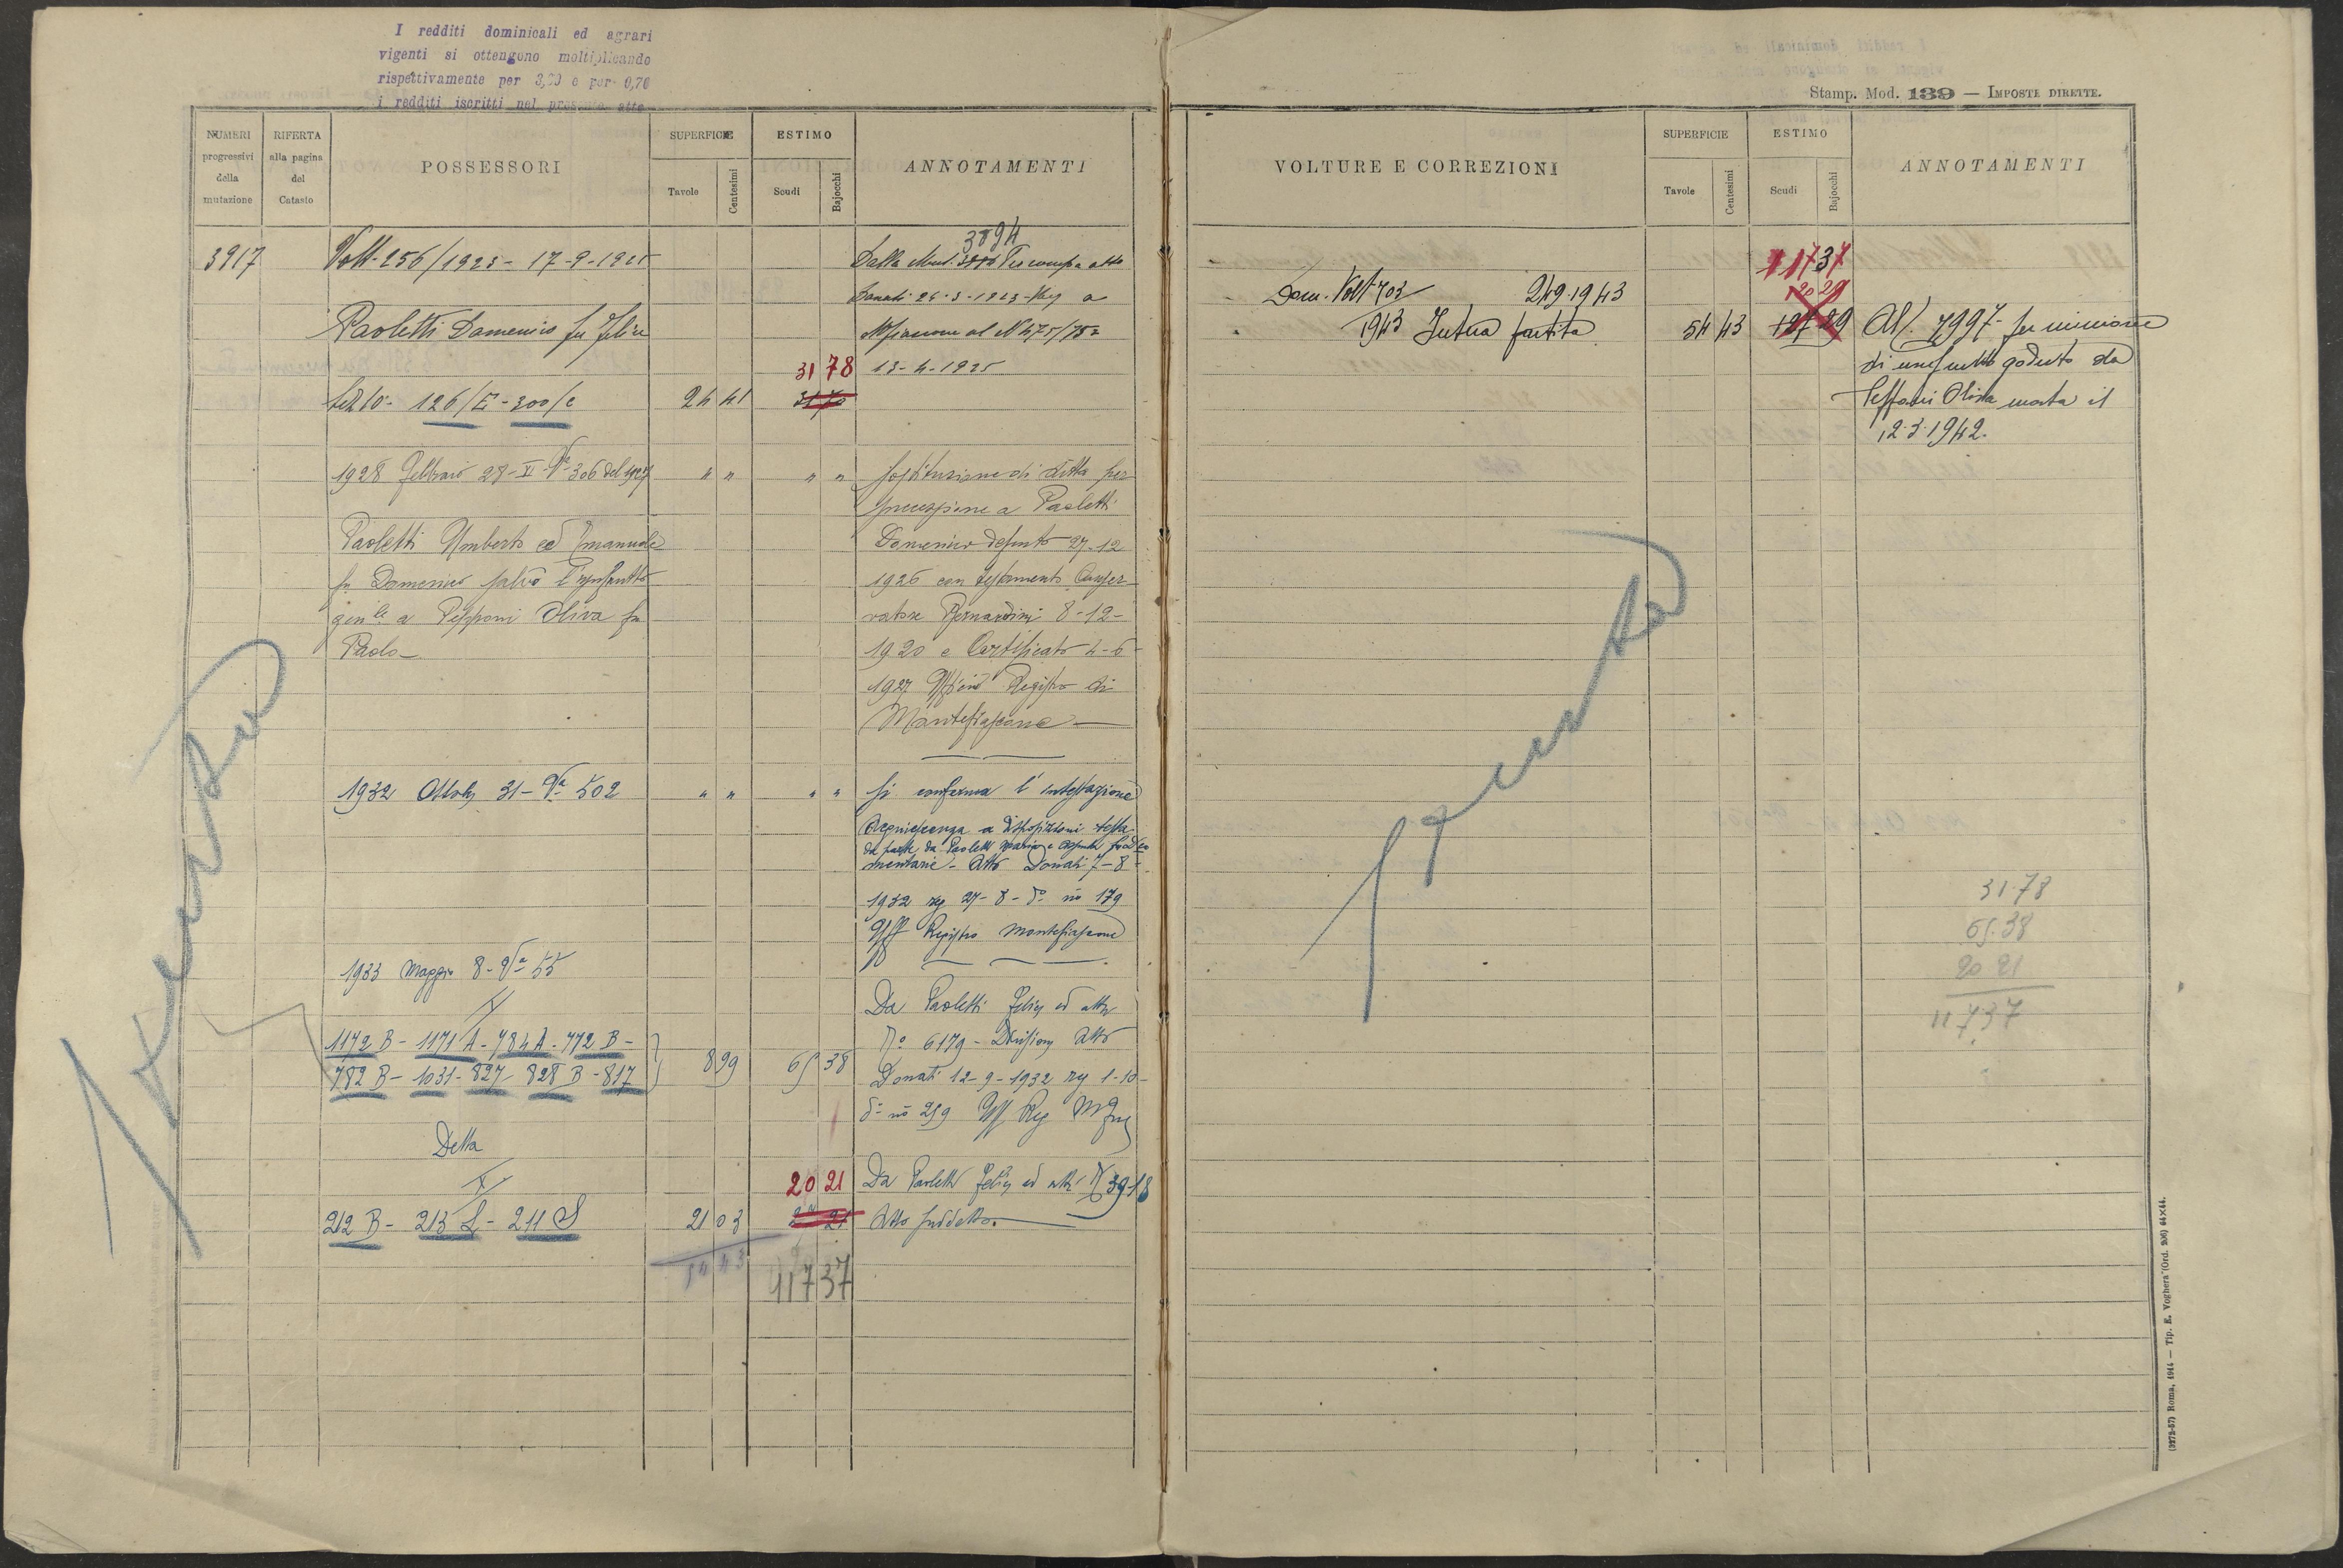 I redditi dominicali ed agrari
vigenti si ottengono moltiplicando
rispettivamente per 3,33 e per 0,70
i redditi iscritti nel presente atto
NUMERI progressivi della mutazione
RIFERTA alla pagina del Catasto
POSSESSORI
SUPERFICIE
Tavole Centesimi
ESTIMO
Scudi Bajocchi
ANNOTAMENTI
3917 Volt. 256/1925 - 17-9-1925
3894
Dalla Mut. atto
Donati 24-3-1923 - Reg a
Paoletti Domenico fu Felice
Mfiascone al N 475/752
31 78 13-4-1925
Sez 10 - 126/E - 300/2 24 41
1928 Febbraio 28 - VI - Va 306 del 1927 " " " " Sostituzione di Ditta per
successione a Paoletti
Paoletti Umberto ed Emanuele
Domenico defunto 27-12
fu Domenico salvo l'usufrutto
1926 con testamento Conser-
gen.le a Pepponi Oliva fu
vatore Bernardini 8-12-
Paolo
1920 e Certificato 4-6
1927 Ufficio Registro di
Montefiascone
1932 Ottob. 31 - Va 502 " " " " Si conferma l'intestazione
Acquiescenza a disposizioni testa-
da parte da Paoletti
mentarie - Atto Donati 7-8-
1932 reg 27-8-do no 179
Uff Registro Montefiascone
1933 Maggio 8 - Va 55
Da Paoletti Felice ed altri
1172 B - 1171 A - 784 A - 772 B -
No 6179 - Divisione Atto
782 B - 1031 - 827 - 828 B - 817 8 99 65 38
Donati 12-9-1932 reg 1-10-
do no 259 Uff Reg
Detta
20 21 Da Paoletti Felice ed altri N 3918
212 B - 213 L - 211 S 21 03 Atto suddetto
54 43
117 37
Inserito
Stamp. Mod. 139 — IMPOSTE DIRETTE.
VOLTURE E CORREZIONI
SUPERFICIE
Tavole Centesimi
ESTIMO
Scudi Bajocchi
ANNOTAMENTI
117 37
Dom. Volt 703 24.9.1943
1943 Intera partita 54 43 Al N. 7997 - per riunione
di usufrutto goduto da
Oliva morta il
12.3.1942.
31.78
65.38
20 21
117 37
(3272-57) Roma, 1914 — Tip. E. Voghera (Ord. 206) 64×44.